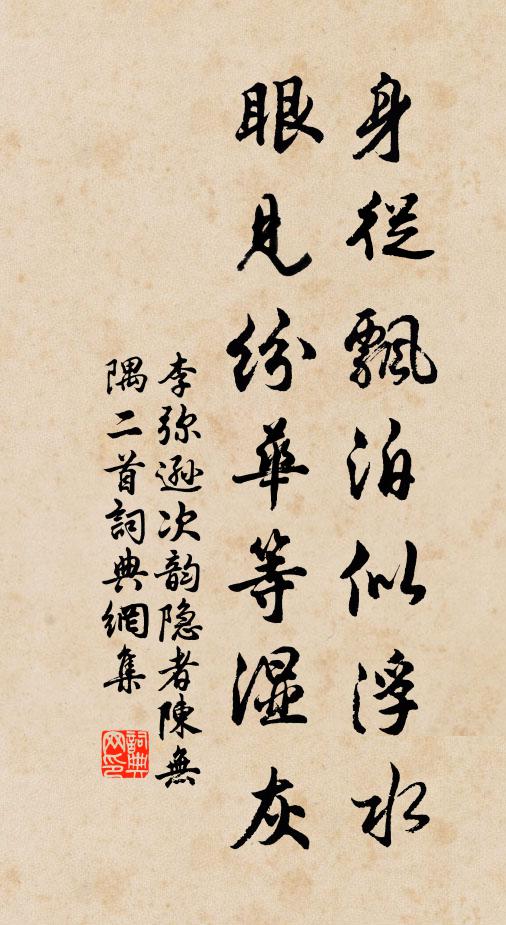 身從飄泊似浮水
眼見紛華等濕灰
李弥遜次韵隐者陳無
隅二首詞典網集
詞典
网印